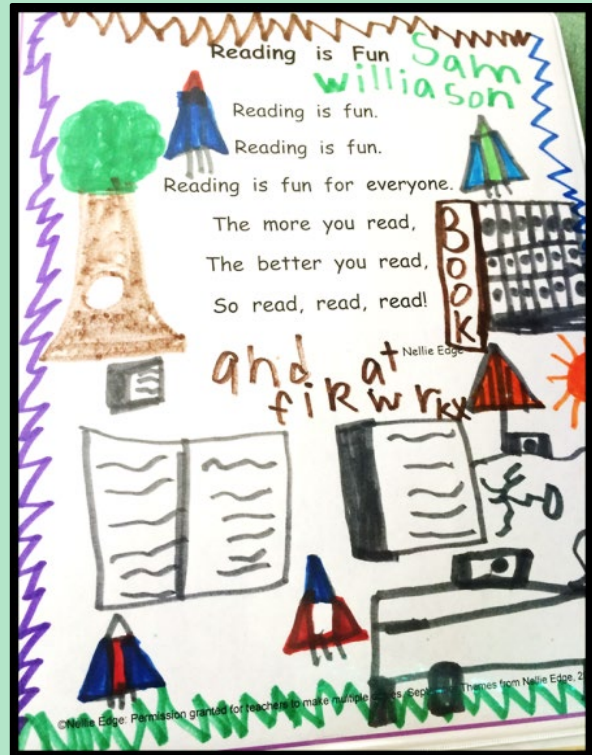 Reading is Fun
Sam
williason
Reading is fun.
Reading is fun.
Reading is fun for everyone.
The more you read,
The better you read,
So read, read, read!
BooK
Nellie Edge
and at
fiRwrkx
©Nellie Edge: Permission granted for teachers to make multiple Themes from Nellie Edge, 2